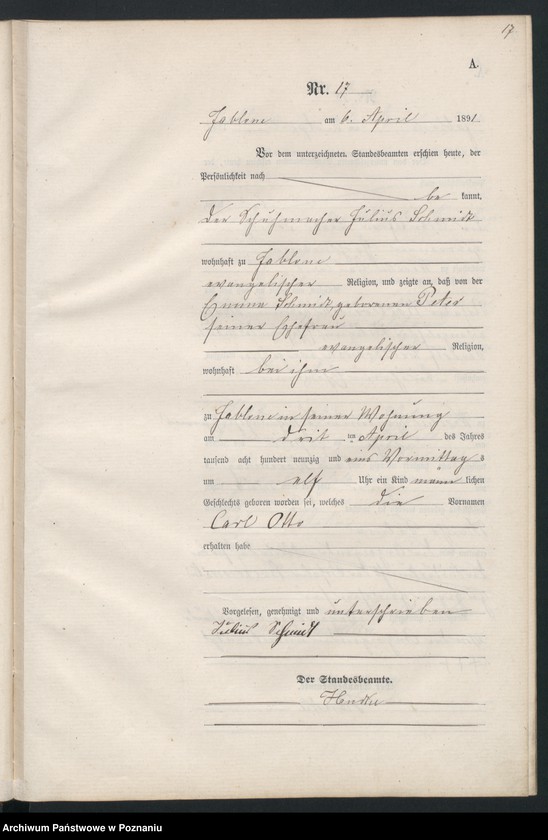 17
A.
Nr. 17
Jablone am 6. April 1891
Vor dem unterzeichneten Standesbeamten erschien heute, der
Persönlichkeit nach
be kannt,
der Schuhmacher Julius Schmidt
wohnhaft zu Jablone
evangelischer Religion, und zeigte an, daß von der
Emma Schmidt geborenen Peter
seiner Ehefrau
evangelischer Religion,
wohnhaft bei ihm
zu Jablone in seiner Wohnung
am drit ten April des Jahres
tausend acht hundert neunzig und eins Vormittag s
um elf Uhr ein Kind männ lichen
Geschlechts geboren worden sei, welches die Vornamen
Carl Otto
erhalten habe
Vorgelesen, genehmigt und unterschrieben
Julius Schmidt
Der Standesbeamte.
Archiwum Państwowe w Poznaniu